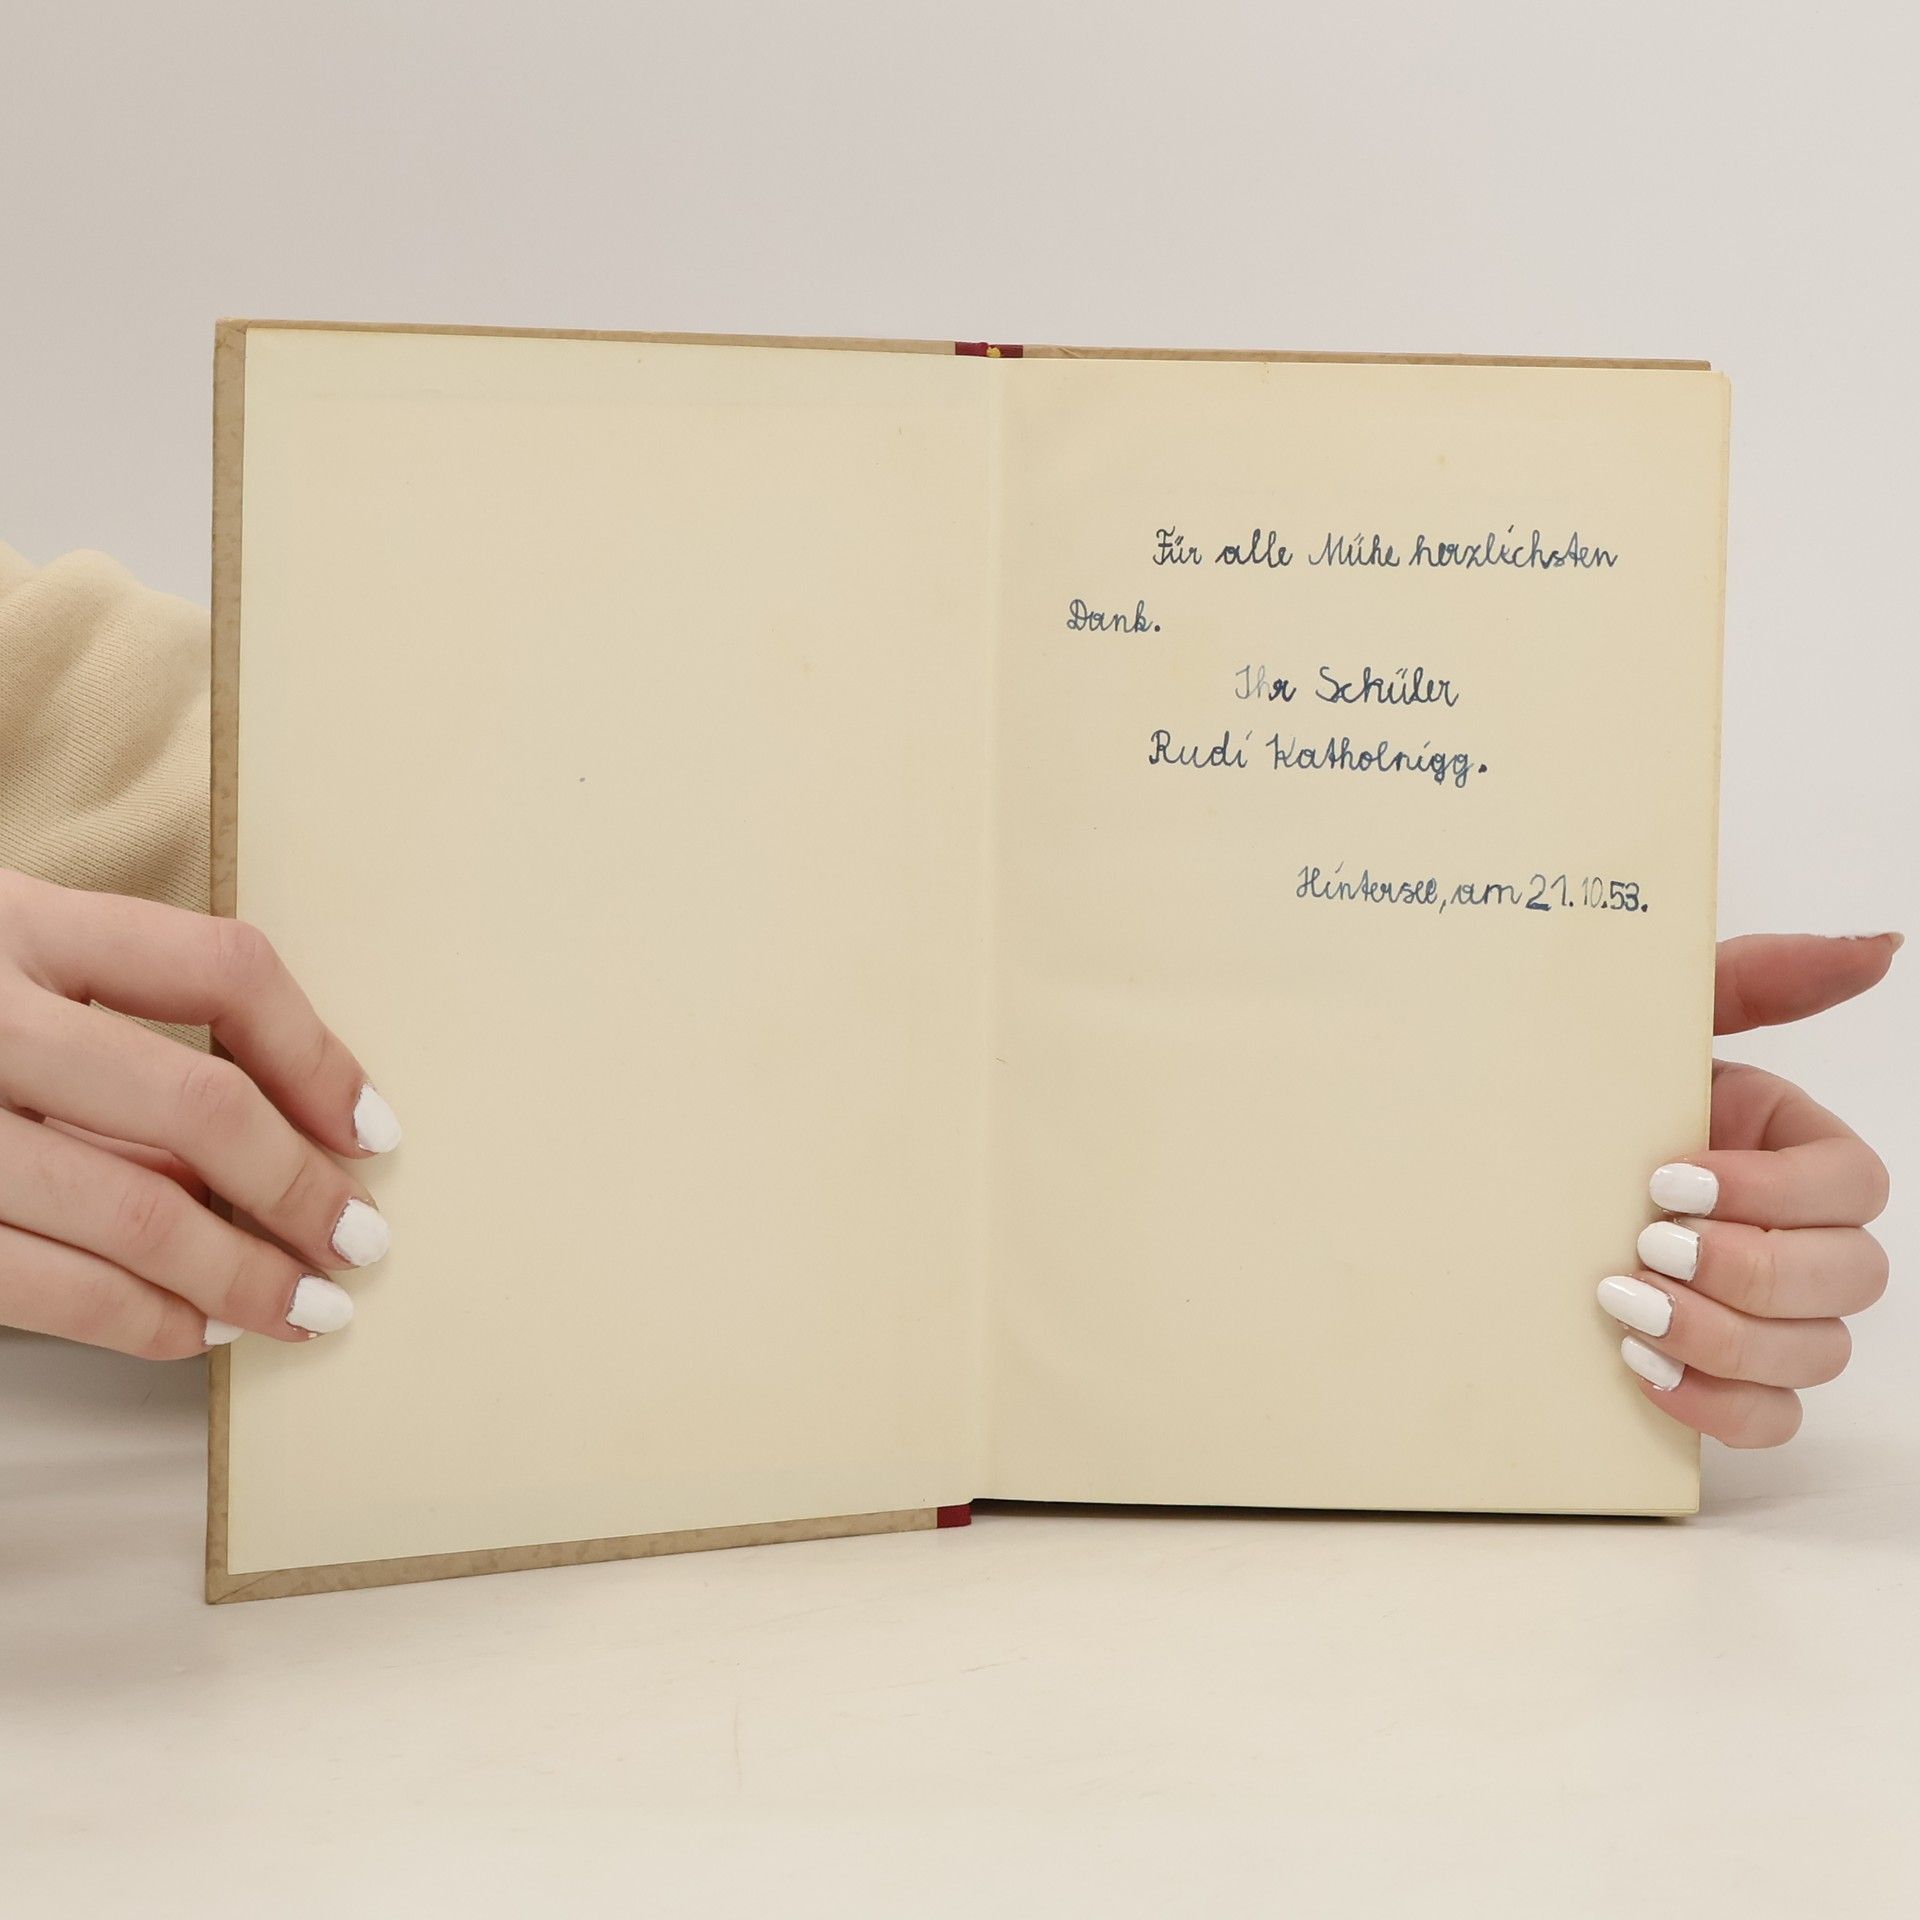 Für alle Mühe herzlichsten
Dank.
Ihr Schüler
Rudi Katholnigg.
Hintersee, am 21.10.53.